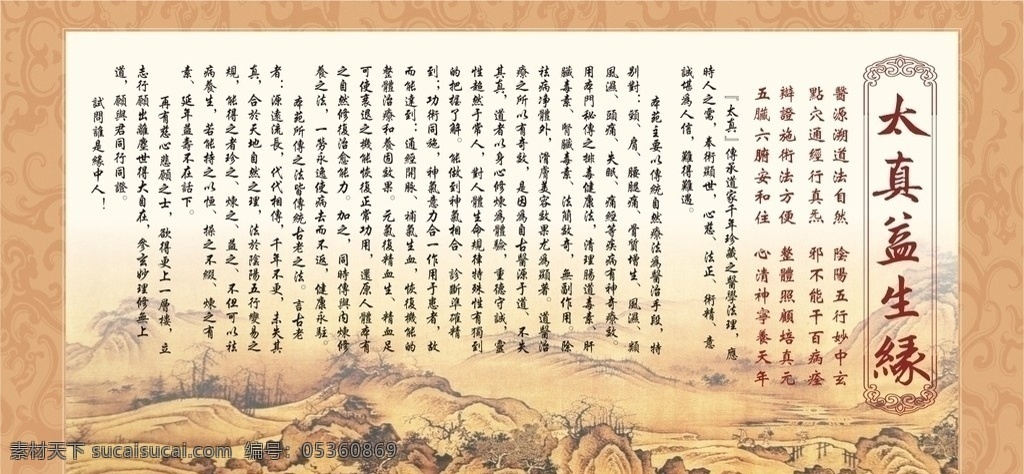 太真益生緣
醫源溯道法自然　陰陽五行妙中玄
點穴通經行真炁　邪不能干百病痊
辯證施術法方便　整體照顧培真元
五臟六腑安和住　心清神寧養天年
『太真』傳承道家千年珍藏之醫學法理，應
時人之需，奉術顯世，心慈、法正、術精、意
誠堪為人信，難得難遇。
本苑主要以傳統自然療法為醫治手段，特
別對：頸、肩、腰腿痛、骨質增生、風濕、類
風濕、頭痛、失眠、痛經等疾病有神奇療效。
用本門秘傳之排毒健康法，清理腸道毒素、肝
臟毒素、腎臟毒素，法簡效奇，無副作用。除
祛病凈體外，滑膚美容效果尤為顯著。道醫治
療之所以有奇效，是因為自古醫源于道，不失
其真，道者以身心修煉為體驗，重德守誠，靈
性超然于常人，對人體生命規律特殊性有獨到
的把握了解。能做到神氣相合、診斷準確精
到；功術同施，神氣意力合一作用于患者，故
而能達到：通經開脈、補氣生血，恢復機能的
整體治療和養固效果。元氣復精血生、精血足
可使衰退之機能恢復正常功用，還原人體本有
之自然修復治愈能力。加之，同時傳與内煉修
養之法，一勞永逸使病去而不返，健康永駐。
本苑所傳之法皆傳統古老之法。言古老
者：源遠流長，代代相傳，千年不更，未失其
真，合於天地自然之理，法於陰陽五行變易之
規，能得之者珍之、煉之、益之、不但可以祛
病養生，若能持之以恒、操之不綴、煉之有
素、延年益壽不在話下。
再有慈心應願之士，欲得更上一層樓，立
志行願出離塵世得大自在，參玄妙理修無上
道，願與君同行同證。
試問誰是緣中人！
素材天下 sucaisucai.com 编号：05360869